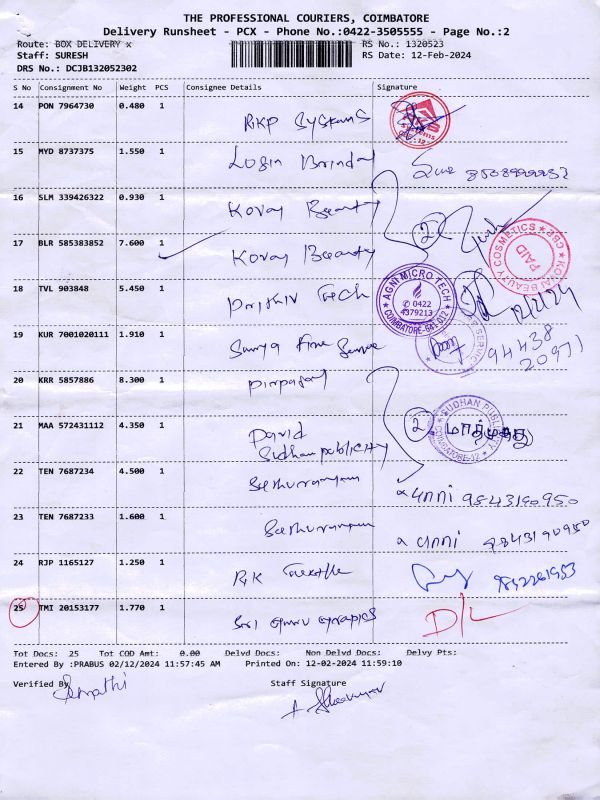 THE PROFESSIONAL COURIERS, COIMBATORE
Delivery Runsheet - PCX - Phone No.:0422-3505555 - Page No.:2
Route: BOX DELIVERY x RS No.: 1320523
Staff: SURESH RS Date: 12-Feb-2024
DRS No.: DCJB132052302
S No Consignment No Weight PCS Consignee Details Signature
14 PON 7964730 0.480 1
RKP Systems
15 MYD 8737375 1.550 1
Login
16 SLM 339426322 0.930 1
Kovai Beauty
17 BLR 585383852 7.600 1 2
Kovai Beauty
KOVAI BEAUTY COSMETICS CBE PAID
18 TVL 903848 5.450 1
Prithiv Tech
AGNI MICRO TECH 0422 4379213 COIMBATORE-641 012
12/2/24
19 KUR 7001020111 1.910 1
Surya Fire Service
94438
20971
20 KRR 5857886 8.300 1
21 MAA 572431112 4.350 1
David
Sudhan publicity
2
SUDHAN PUBLICITY COIMBATORE-12
22 TEN 7687234 4.500 1
9843190950
23 TEN 7687233 1.600 1
9843190950
24 RJP 1165127 1.250 1
R.K Textile
25 TMI 20153177 1.770 1
Sri Guru Grapics
D/L
Tot Docs: 25 Tot COD Amt: 0.00 Delvd Docs: Non Delvd Docs: Delvy Pts:
Entered By :PRABUS 02/12/2024 11:57:45 AM Printed On: 12-02-2024 11:59:10
Verified By Staff Signature